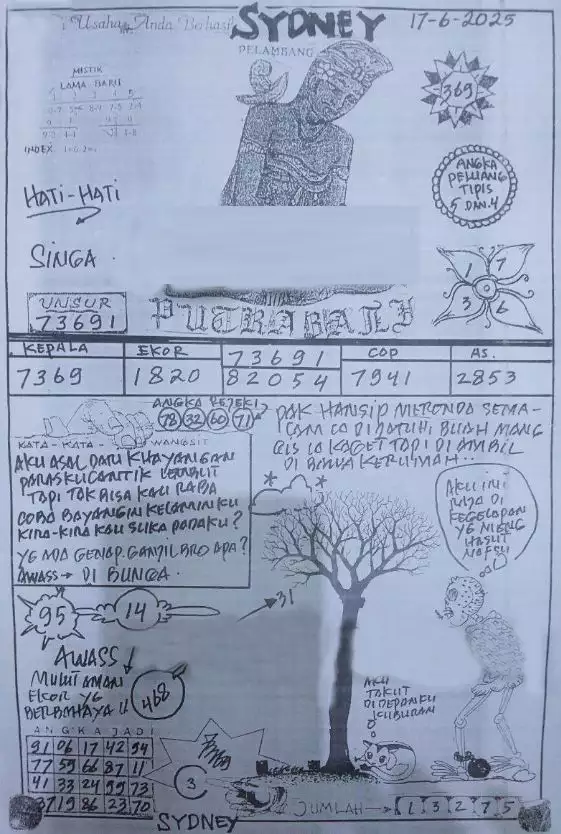 Usaha Anda Berhasil
SYDNEY
17-6-2025
PELAMBANG
MISTIK
LAMA BARU
INDEX
369
HATI-HATI
ANGKA
PELUANG
TIPIS
5 DAN 4
SINGA
1 7
3 6
UNSUR
73691
PUTRABALI
KEPALA
7369
EKOR
1820
73691
82054
COP
7941
AS.
2853
ANGKA REJEKI
78 32 60 71
PAK HANSIP MERONDA SEMA-
CAM
BUAH MANG
GIS IA KAGET TAPI DI AMBIL
DI BAWA KERUMAH...
KATA-KATA WANGSIT
AKU ASAL DARI KHAYANGAN
PARASKU CANTIK LEMBUT
TAPI TAK BISA KAU RABA
COBA BAYANGIN KELAMINKU
KIRA-KIRA KAU SUKA PADAKU?
YG MDA GENAP. GANJIL BRO APA?
AWASS → DI BUNGA.
AKU INI
RAJA DI
KEGELAPAN
YG MENG
HASUT
NAFSU
95
14
31
AWASS
MULUT AMAN
EKOR YG
BERBAHAYA !!
468
AKU
TAKUT
DIDEPANKU
KUBURAN
ANGKA JADI
91 06 17 42 94
77 59 66 87 11
41 33 24 99 73
37 19 86 23 70
3
JUMLAH → 1 3 2 7 5
SYDNEY